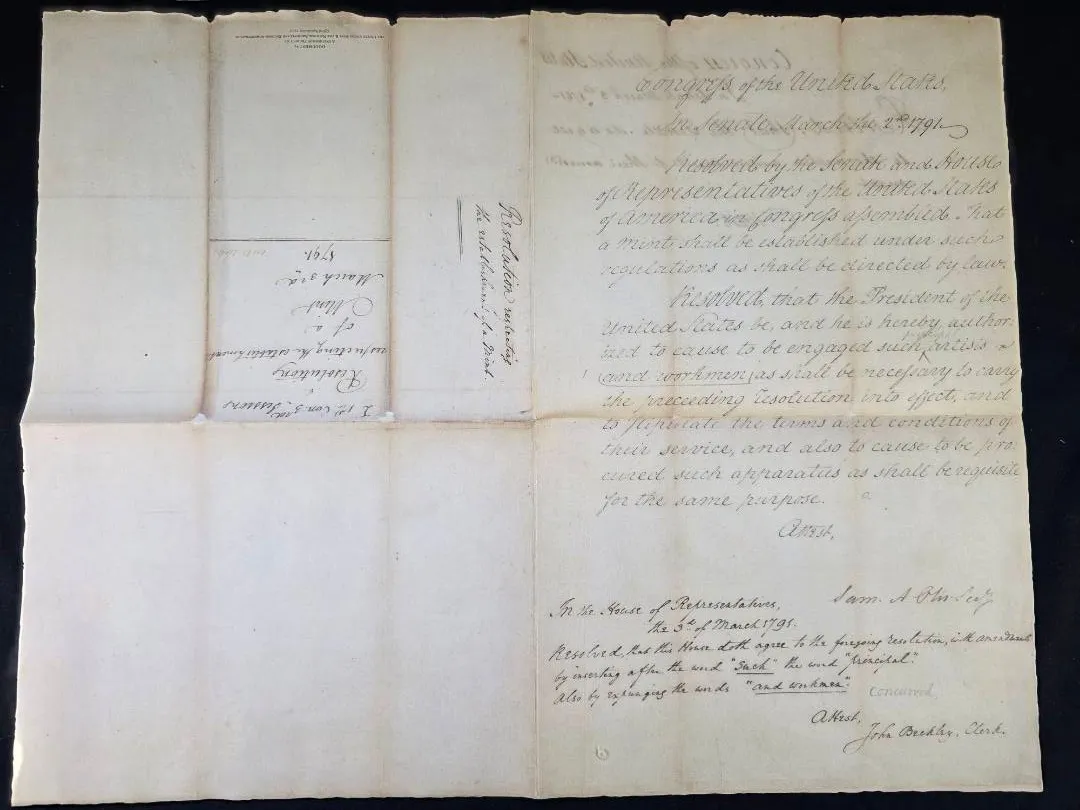 Congress of the United States,
In Senate March the 2nd. 1791
Resolved by the Senate and House
of Representatives of the United States
of America in Congress assembled. That
a mint shall be established under such
regulations as shall be directed by law.
Resolved, that the President of the
United States be, and he is hereby, author-
ized to cause to be engaged such artists
(and workmen) as shall be necessary to carry
the preceding resolution into effect, and
to stipulate the terms and conditions of
their service, and also to cause to be pro-
cured such apparatus as shall be requisite
for the same purpose.
Attest,
Sam. A. Otis Secy
In the House of Representatives,
the 3d. of March 1791.
Resolved, that this House doth agree to the foregoing resolution, with amendments
by inserting after the word "such" the word "principal".
Also by expunging the words "and workmen".
Concurred
Attest,
John Beckley, Clerk.
Resolution respecting
the establishment of a Mint.
1st Con 3rd Session
Resolution
respecting the establishment
of a
Mint
March 3rd
1791.